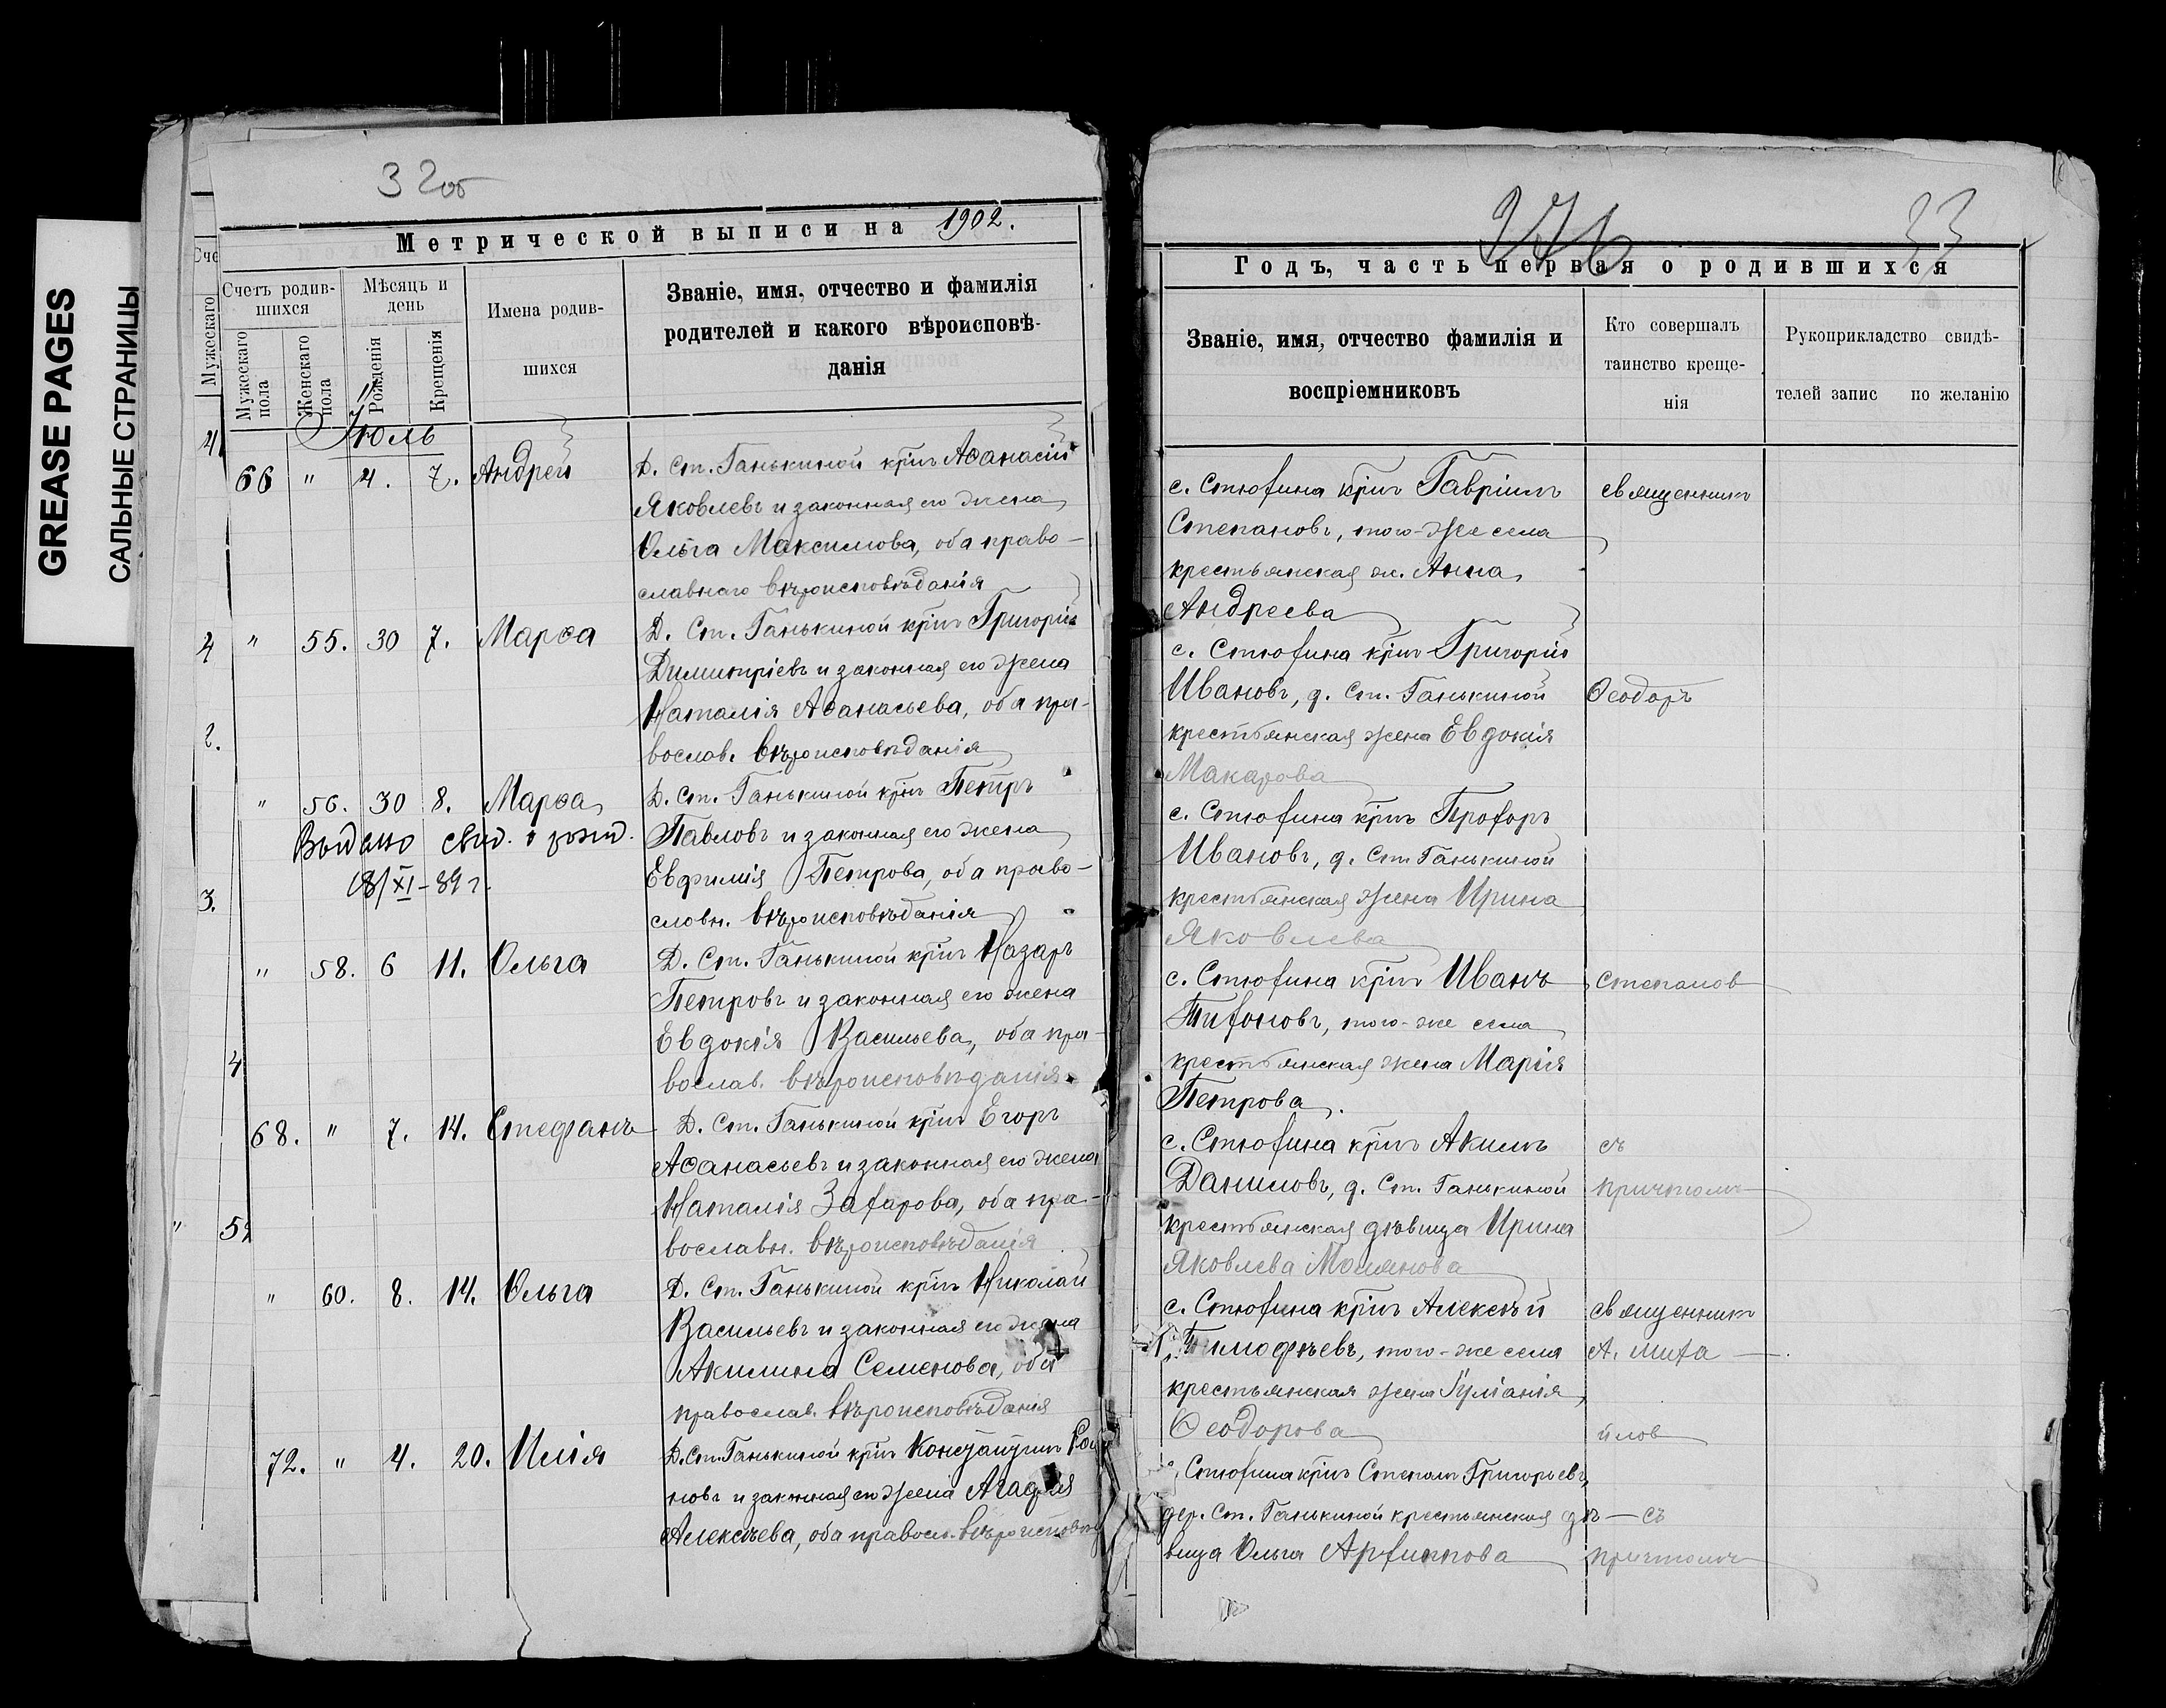 GREASE PAGES
САЛЬНЫЕ СТРАНИЦЫ
32об
Метрической выписи на 1902.
Счетъ родившихся
Мужескаго пола
Женскаго пола
Мѣсяцъ и день
Рожденія
Крещенія
Имена родившихся
Званіе, имя, отчество и фамилія
родителей и какого вѣроисповѣ-
данія
Іюль
66 " 4. 7. Андрей Д. Ст. Ганькиной кр̃нъ Аѳанасій
Яковлевъ и законная его жена
Ольга Максимова, оба право-
славнаго вѣроисповѣданія
" 55. 30 7. Марѳа Д. Ст. Ганькиной кр̃нъ Григорій
Димитріевъ и законная его жена
Наталія Аѳанасьева, оба пра-
вослав. вѣроисповѣданія
" 56. 30 8. Марѳа Д. Ст. Ганькиной кр̃нъ Петръ
Выдано свид. о рожд. Павловъ и законная его жена
18/XI-89 г. Евфимія Петрова, оба право-
славн. вѣроисповѣданія
" 58. 6 11. Ольга Д. Ст. Ганькиной кр̃нъ Назаръ
Петровъ и законная его жена
Евдокія Васильева, оба пра-
вослав. вѣроисповѣданія
68. " 7. 14. Стефанъ Д. Ст. Ганькиной кр̃нъ Егоръ
Аѳанасьевъ и законная его жена
Наталія Захарова, оба пра-
вославн. вѣроисповѣданія
" 60. 8. 14. Ольга Д. Ст. Ганькиной кр̃нъ Николай
Васильевъ и законная его жена
Акилина Семенова, оба
православ. вѣроисповѣданія
72. " 4. 20. Илія Д. Ст. Ганькиной кр̃нъ Константинъ
новъ и законная его жена Агафія
Алексѣева, оба правосл. вѣроисповѣд
33
Годъ, часть первая о родившихся
Званіе, имя, отчество фамилія и
воспріемниковъ
Кто совершалъ
таинство креще-
нія
Рукоприкладство свидѣ-
телей запис по желанію
с. Стюхина кр̃нъ Гавріилъ священникъ
Степановъ, того-же села
крестьянская ж. Анна
Андреева
с. Стюхина кр̃нъ Григорій
Ивановъ, д. Ст. Ганькиной Ѳеодоръ
крестьянская жена Евдокія
Макарова
с. Стюхина кр̃нъ Прохоръ
Ивановъ, д. Ст. Ганькиной
крестьянская жена Ирина
Яковлева
с. Стюхина кр̃нъ Иванъ Степанов
Тихоновъ, того-же села
крестьянская жена Марія
Петрова.
с. Стюхина кр̃нъ Акимъ съ
Даниловъ, д. Ст. Ганькиной причтомъ
крестьянская дѣвица Ирина
Яковлева
с. Стюхина кр̃нъ Алексѣй священникъ
Тимофѣевъ, того-же села А. Миха
крестьянская жена Іуліанія
Ѳеодорова йлов
с. Стюхина кр̃нъ Степанъ Григорьевъ,
дер. Ст. Ганькиной крестьянская дѣ- съ
вица Ольга Архиппова причтомъ